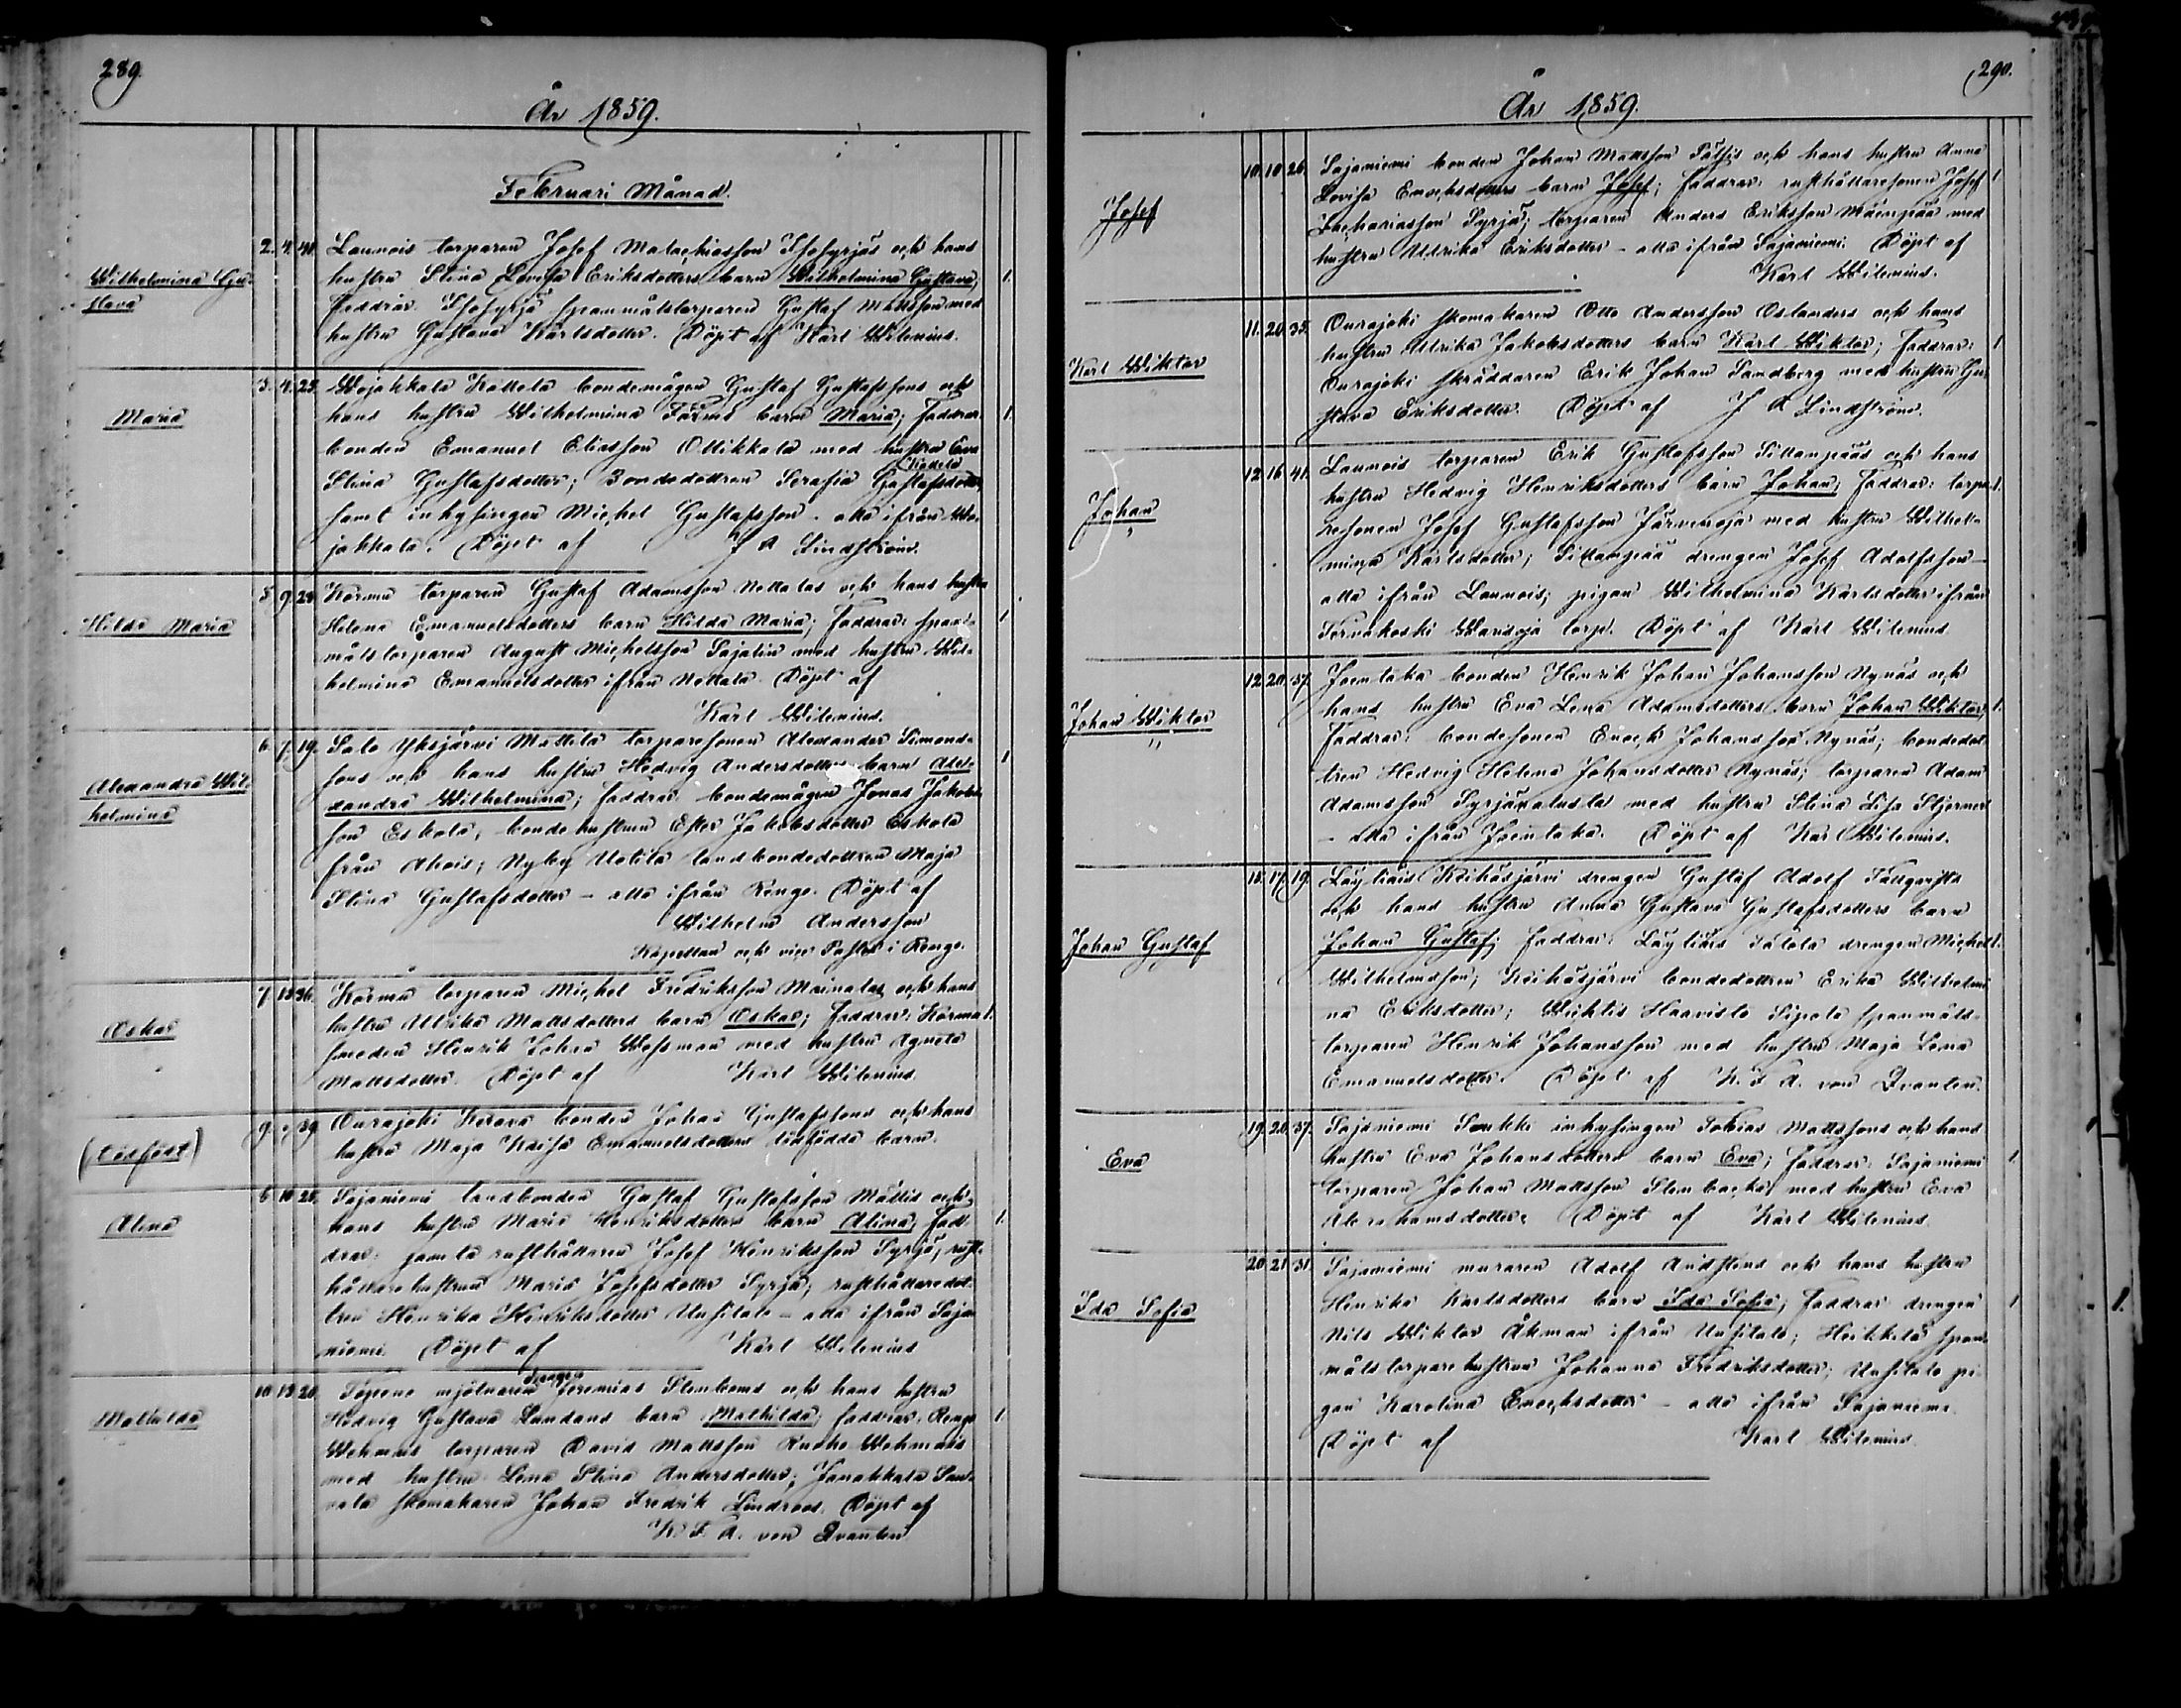 289.
År 1859.
Februari Månad.
Wilhelmina Gu-
stava
2. 4. 40. Launois torparen Josef Malachiasson Isosyrjäs och hans
hustru Stina Lovisa Eriksdotters barn Wilhelmina Gustava; 1.
Faddrar: Isosyrjä spanmålstorparen Gustaf Mattsson med
hustru Gustava Karlsdotter. Döpt af Karl Wilenius.
Maria
3. 4. 25. Wojakkala Kattela bondemågen Gustaf Gustafssons och
hans hustru Wilhelmina barn Maria; Faddrar: 1.
bonden Emanuel Eliasson Ollikkala med hustru Eva
Stina Gustafsdotter; Bondedottren Serafia Gustafsdotter
samt inhysingen Michel Gustafsson – alla ifrån Wo-
jakkala. Döpt af J A Lindström.
Hilda Maria
5. 9. 24. Kormu torparen Gustaf Adamsson Nottolas och hans hustru
Helena Emanuelsdotters barn Hilda Maria; Faddrar: span- 1
målstorparen August Michelsson Sajalin med hustru Wil-
helmina Emanuelsdotter ifrån Nottala. Döpt af
Karl Wilenius.
Alexandra Wil-
helmina
6. 7. 19. Salo Yksjärvi Mattila torparesonen Alexander Simons-
sons och hans hustru Hedvig Andersdotters barn Alex- 1
andra Wilhelmina; Faddrar: bondemågen Jonas Jakobs-
son Eskola, bondehustrun Ester Jakobsdotter Eskola
från Ahois; Nyby Uotila landbondedottren Maja
Stina Gustafsdotter – alla ifrån Rengo. Döpt af
Wilhelm Andersson
Kapellan och vice Pastor i Rengo.
Oskar
7. 13. 36. Kormu torparen Michel Fredriksson Mainalas och hans
hustru Ulrika Mattsdotters barn Oskar; Faddrar: Kormu 1.
smeden Henrik Johan Wessman med hustru Agneta
Mattsdotter. Döpt af Karl Wilenius.
(Dödfödt)
9. " 39. Ourajoki Kerava bonden Johan Gustafssons och hans
hustru Maja Kaisa Emanuelsdotters dödfödda barn.
Alina
6. 10. 25. Sajaniemi landbonden Gustaf Gustafsson Mattis och
hans hustru Maria Henriksdotters barn Alina; Fad- 1.
drar: gamla rusthållaren Josef Henriksson Syrjä, rust-
hållarehustrun Maria Josefsdotter Syrjä; rusthållaredot-
tren Henrika Henriksdotter Uusitalo – alla ifrån Saja-
niemi. Döpt af Karl Wilenius
Mathilda
10. 13. 20. Topeno mjölnaren Jeremias Stenboms och hans hustru
drengen
Hedvig Gustava Sundans barn Mathilda; Faddrar: Rengo 1.
Wehmais torparen David Mattsson Ruoho Wehmais
med hustru Lena Stina Andersdotter; Janakkala San-
vala skomakaren Johan Fredrik Lindroos. Döpt af
K. F. A. von Qvanten
290.
År 1859.
Josef
10. 10. 26. Sajaniemi bonden Johan Mattsson Pätsis och hans hustru Anna
Lovisa Enochsdotters barn Josef; Faddrar: rusthållaresonen Josef 1
Zachariasson Syrjä; torparen Anders Eriksson Mäenpää med
hustru Ulrika Eriksdotter – alla ifrån Sajaniemi. Döpt af
Karl Wilenius.
Karl Wiktor
11. 20. 35. Ourajoki skomakaren Otto Andersson Oslanders och hans
hustru Ulrika Jakobsdotters barn Karl Wiktor; Faddrar: 1
Ourajoki skräddaren Erik Johan Sandberg med hustru Gu-
stava Eriksdotter. Döpt af J A Lindström.
Johan
"
12. 16. 41. Launois torparen Erik Gustafsson Sillanpääs och hans
hustru Hedvig Henriksdotters barn Johan; Faddrar: torpa- 1.
resonen Josef Gustafsson Järvenoja med hustru Wilhel-
mina Karlsdotter; Sillanpää drengen Josef Adolfsson –
alla ifrån Launois; pigan Wilhelmina Karlsdotter ifrån
Tervakoski Warisoja torp. Döpt af Karl Wilenius
Johan Wiktor
"
12. 20. 37. Joentaka bonden Henrik Johan Johansson Nynäs och
hans hustru Eva Lena Adamsdotters barn Johan Wiktor; 1.
Faddrar: bondesonen Enoch Johansson Nynäs; bondedot-
tren Hedvig Helena Johansdotter Nynäs; torparen Adam
Adamsson Syrjänalusta med hustru Stina Lisa Stjernert
– alla ifrån Joentaka. Döpt af Karl Wilenius.
Johan Gustaf
15. 17. 19. Läyliäis Keihäsjärvi drengen Gustaf Adolf Tallqvists
och hans hustru Anna Gustava Gustafsdotters barn
Johan Gustaf; Faddrar: Läyliäis Talola drengen Michel 1.
Wilhelmsson; Keihäsjärvi bondedottren Erika Wilhelmi-
na Eriksdotter; Wichtis Haavisto Sipola spanmåls-
torparen Henrik Johansson med hustru Maja Lena
Emanuelsdotter. Döpt af K. F. A. von Qvanten.
Eva
19. 20. 37. Sajaniemi inhysingen Tobias Mattssons och hans
hustru Eva Johansdotters barn Eva; Faddrar: Sajaniemi 1.
torparen Johan Mattsson Stenbacka med hustru Eva
Abrahamsdotter. Döpt af Karl Wilenius.
Ida Sofia
20. 21. 31. Sajaniemi muraren Adolf Aidstens och hans hustru
Henrika Karlsdotters barn Ida Sofia; Faddrar: drengen 1
Nils Wiktor Åkman ifrån Uusitalo; Heikkilä span-
målstorparehustrun Johanna Fredriksdotter; Uusitalo pi-
gan Karolina Enochsdotter – alla ifrån Sajaniemi.
Döpt af Karl Wilenius.